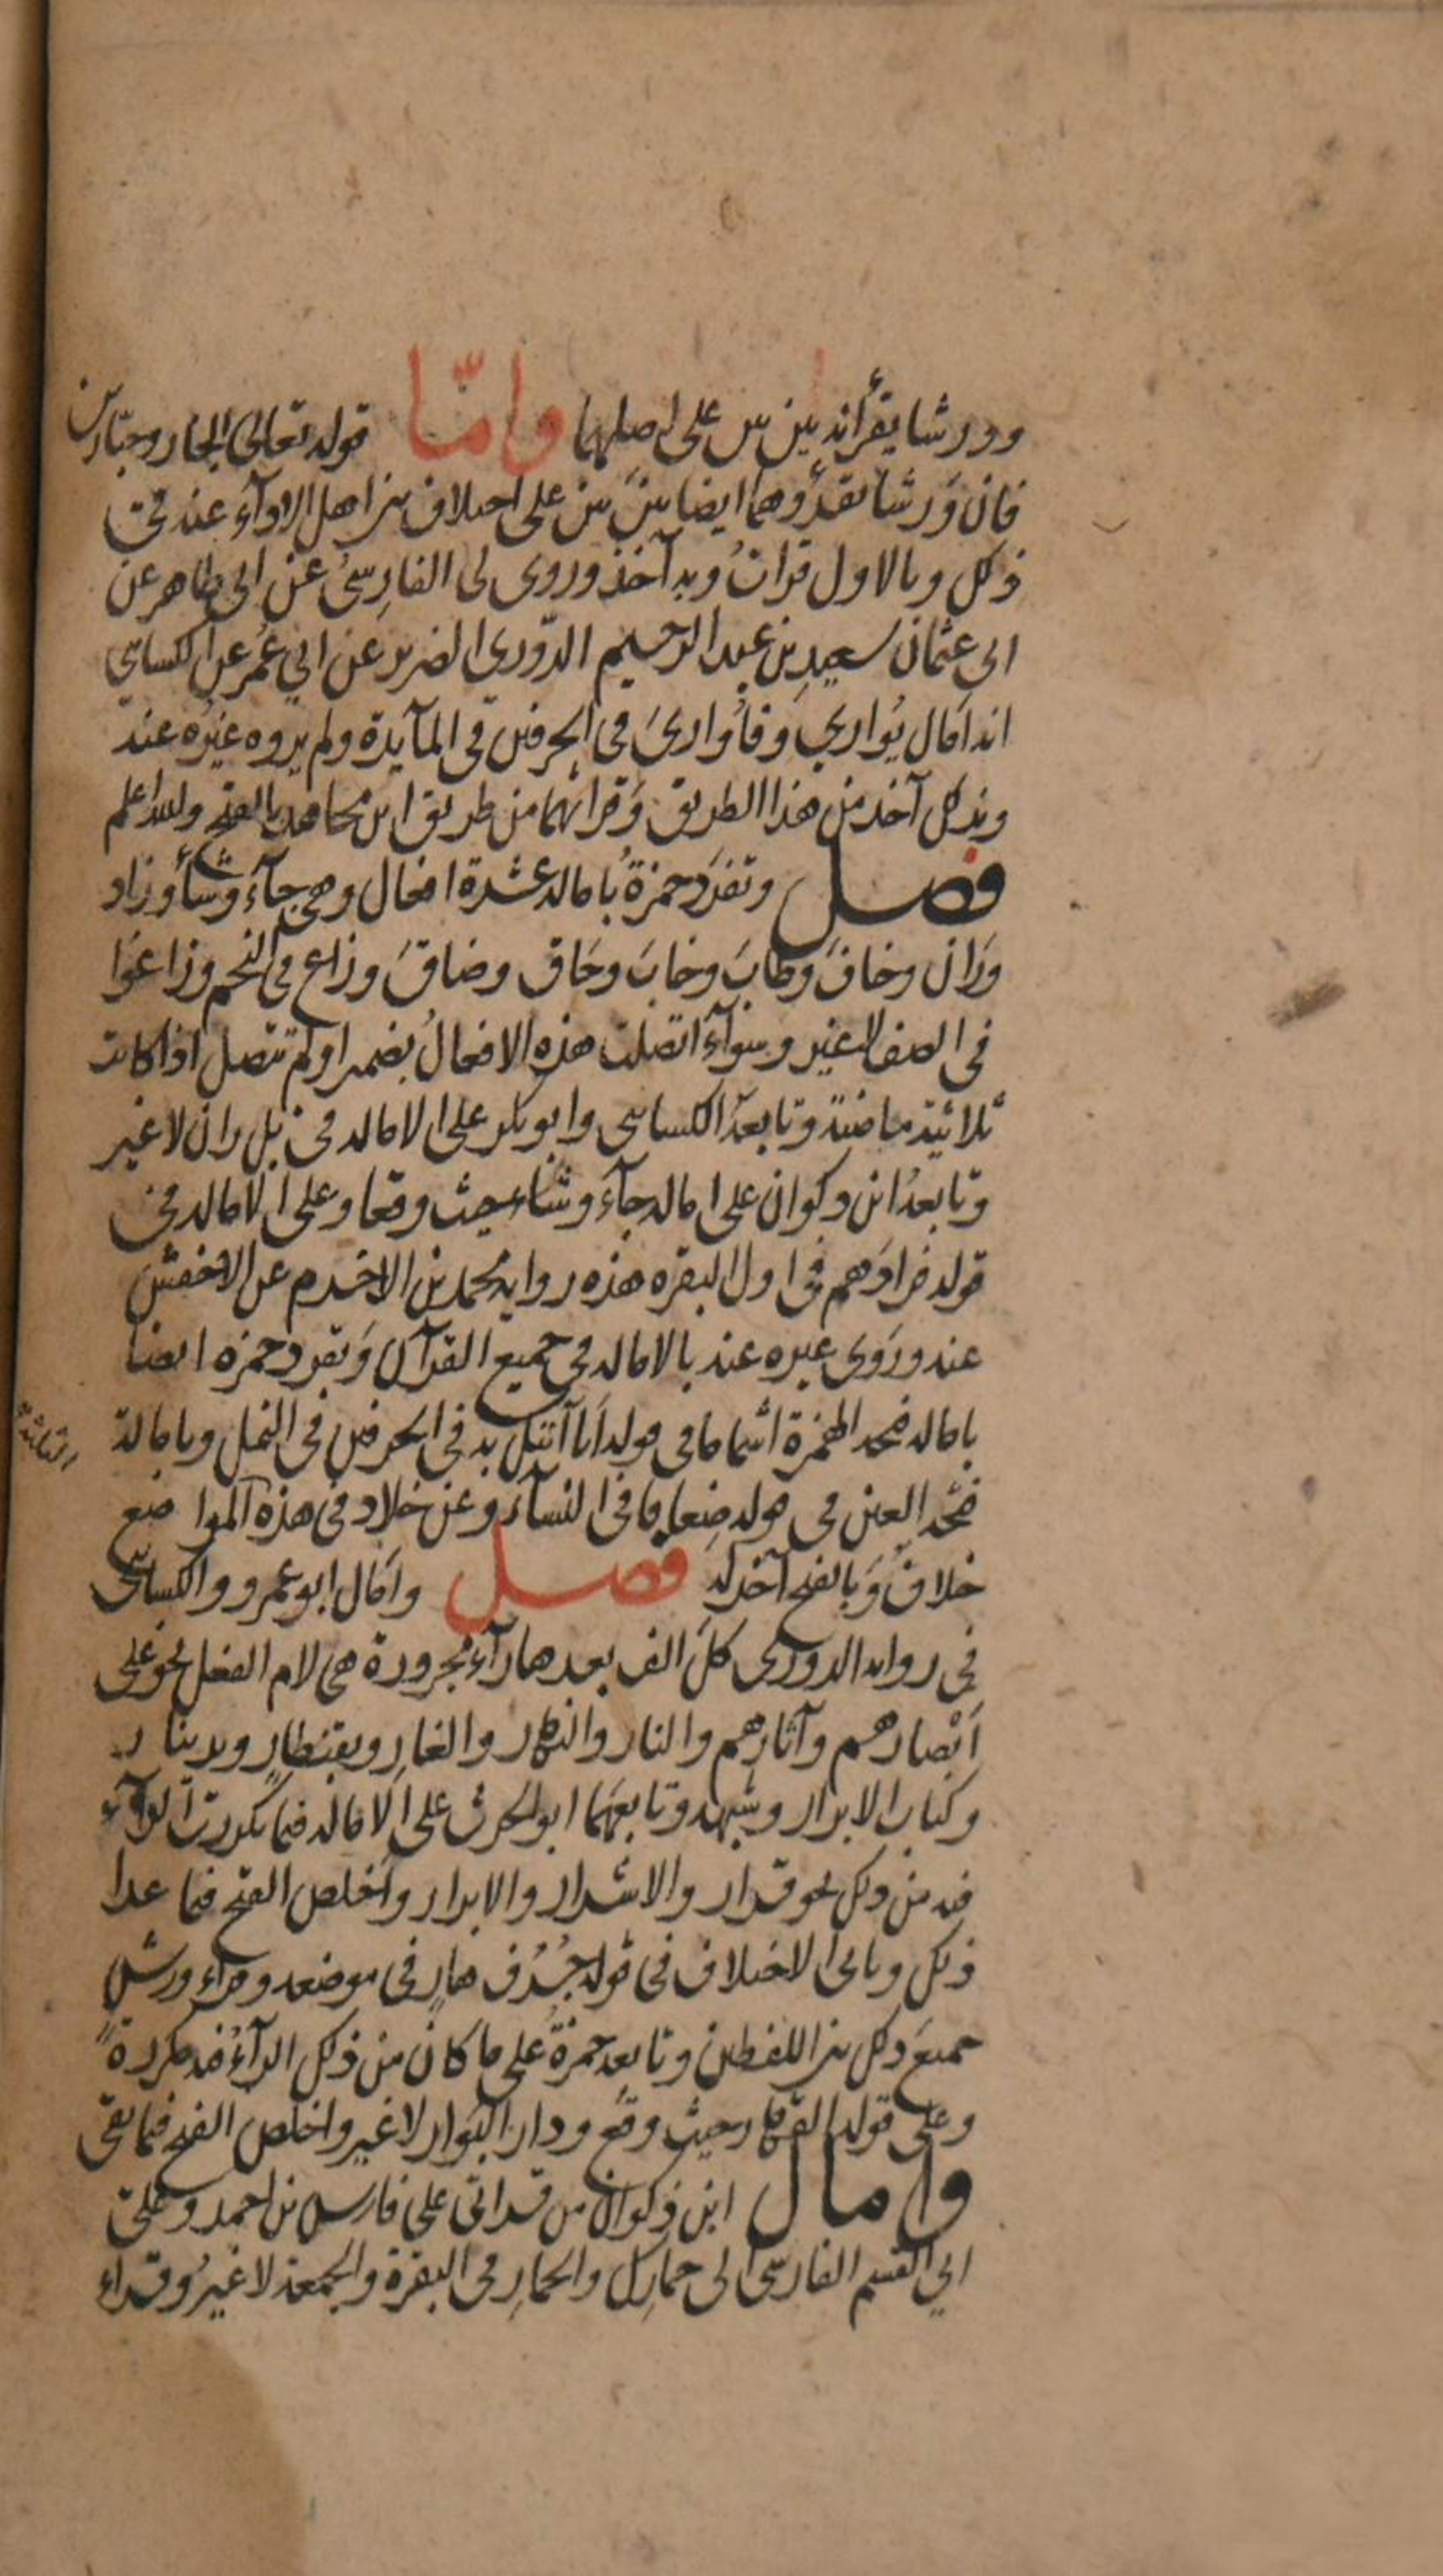 وورشا يقرأنه بين بين على اصلهما واما قوله تعالى الجار وجبّارين
فان وَرشا يقرؤهما ايضا بينَ بين على اختلاف بين اهل الاداء عنه في
ذلك وبالاول قرات وبه آخذ وروى لى الفارِسىُ عن ابى طاهر عن
ابى عثمان سعيدِ بن عبد الرحيم الدّورى الضرير عن ابي عُمر عن الكسائي
انه امال يُوارِي وَفأوارىَ فى الحرفين فى المآيدة ولم يروه غيرُه عنه
وبذلك آخذ من هذا الطريق وَقرأتهما من طريق ابن مجاهد بالفتح والله اعلم
فصل وتفرّد حمزةُ بامالة عشرة افعال وهي جآءَ وشآءَ وزاد
وَرَان وخافَ وطابَ وخابَ وحَاق وضاقَ وزاغ في النجم وزاغوا
فى الصف لا غير وسوآءٌ اتصلت هذه الافعالُ بضمير او لم تتصل اذا كانت
ثلاثيّةً ماضيةً وتابعهُ الكسائى وابو بكر على الامالة فى بل ران لا غير
وتابعهُ ابن ذكوان على امالة جآءَ وشآء حيث وقعا وعلى الامالة في
قوله فزادَهم فى اول البقره هذه رواية محمد بن الاخرم عن الاخفش
عنه ورَوى غيره عنه بالامالة فى جميع القرآن وَتفرد حمزه ايضا
بامالة فتحة الهمزة اشماما فى قوله اَنا آتيك به فى الحرفين فى النمل وبامالة
فتحة العين فى قوله ضِعافا فى النسآءِ وعن خلاد فى هذه المواضع الثلثة
خلافٌ وَبالفتح آخذ له فصل وامَال ابو عمرو والكسائى
فى رواية الدورى كلَ الف بعدها رآء مجرورة هى لام الفعل نحو على
اَبْصارهم وآثارهم والنار والنهار والغارِ وبقنطارٍ وبدينار
وكتاب الابرار وشبهه وتابعهما ابو الحرث على الامالة فيما تكررت الرآء
فيه من ذلك نحو قرار والاشرار والابرار واَخلص الفتح فيما عدا
ذلك وياتى الاختلاف فى قوله جُرُف هارٍ فى موضعه وقراء ورش
جميعَ ذلك بين اللفظين وتابعه حمزةُ على ما كان من ذلك الرآءُ فيه مكررة
وعلى قوله القهار حيث وقع ودار البَوار لا غير واخلص الفتح فيما بقى
وامال ابن ذكوان من قراتى على فارس بن احمد وعلى
ابي القسم الفارسّى الى حمارِك والحمارِ فى البقرة والجمعة لا غيرُ وقراء